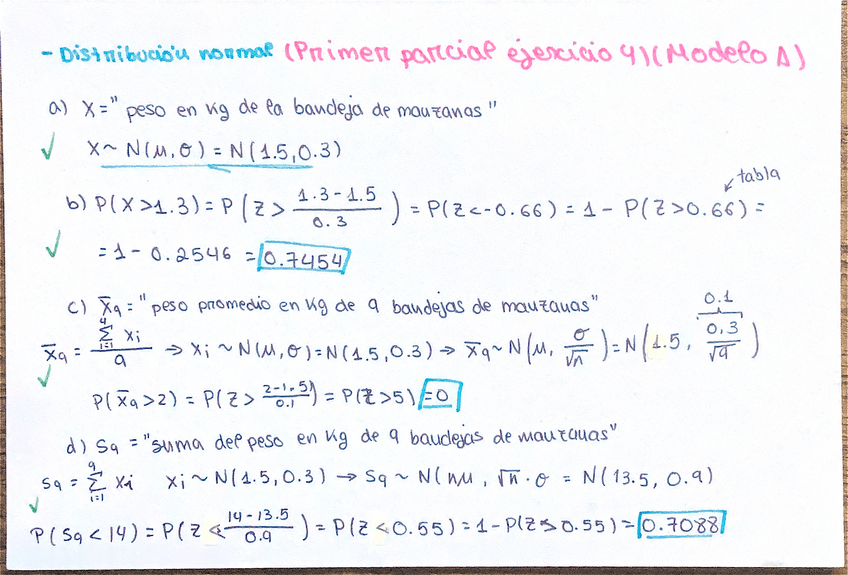 - Distribución normal (Primer parcial ejercicio 4) (Modelo A)
a) X = " peso en kg de la bandeja de manzanas "
✓ X ~ N(μ, σ) = N(1.5, 0.3)
tabla
b) P(X > 1.3) = P(Z > (1.3 - 1.5)/0.3) = P(Z < -0.66) = 1 - P(Z > 0.66) =
✓ = 1 - 0.2546 = 0.7454
c) X̄9 = " peso promedio en kg de 9 bandejas de manzanas"
X̄9 = (Σ_{i=1}^{9} Xi)/9 ⇒ Xi ~ N(μ, σ) = N(1.5, 0.3) → X̄9 ~ N(μ, σ/√n) = N(1.5, 0,3/√9) 0.1
✓ P(X̄9 > 2) = P(Z > (2-1.5)/0.1) = P(Z > 5) = 0
d) S9 = "suma del peso en kg de 9 bandejas de manzanas"
S9 = Σ_{i=1}^{9} Xi Xi ~ N(1.5, 0.3) → S9 ~ N(nμ, √n · σ = N(13.5, 0.9)
✓ P(S9 < 14) = P(Z < (14 - 13.5)/0.9) = P(Z < 0.55) = 1 - P(Z > 0.55) = 0.7088